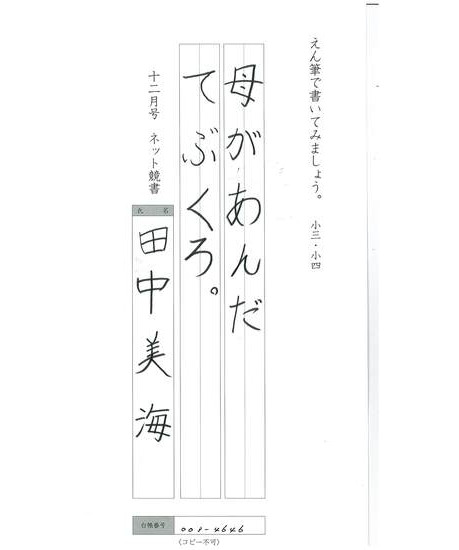 えん筆で書いてみましょう。 小三・小四
母があんだ
てぶくろ。
十二月号 ネット競書
氏 名
田中美海
台帳番号 008-4646
(コピー不可)